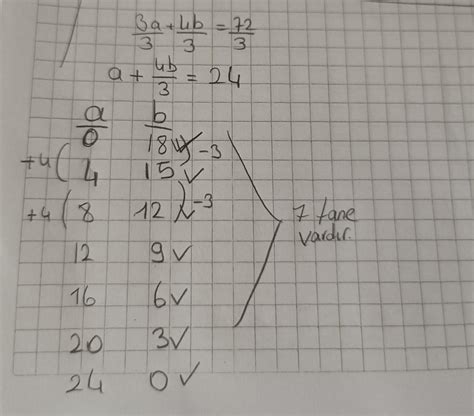 3a/3 + 4b/3 = 72/3
a + 4b/3 = 24
a b
0 18 ✓
+4 ( 4 15 ✓ ) -3
+4 ( 8 12 ✓ ) -3
7 tane
vardır.
12 9 ✓
16 6 ✓
20 3 ✓
24 0 ✓